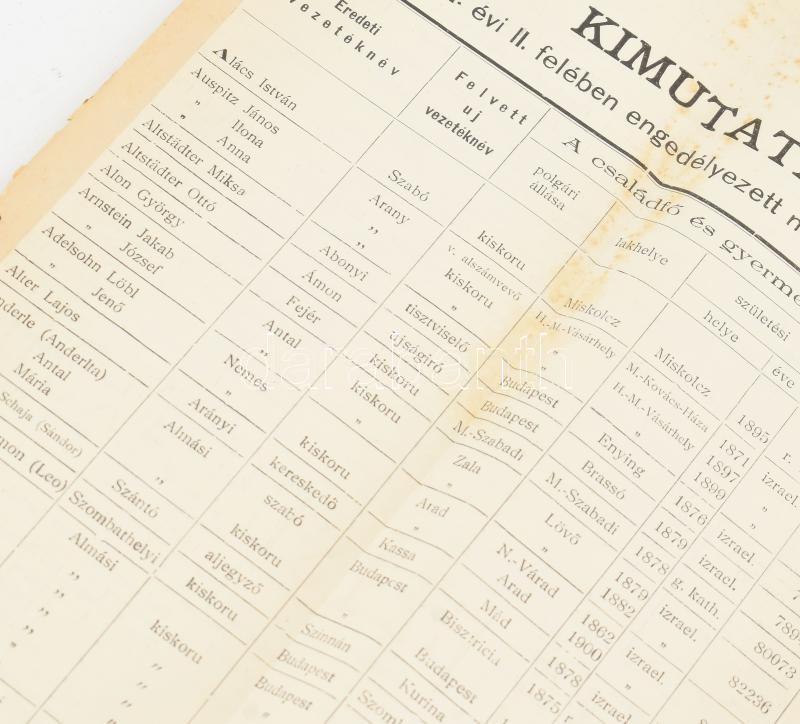 KIMUTAT
évi II. felében engedélyezett n
Eredeti
vezetéknév
Felvett
uj
vezetéknév
A családfő és gyerme
polgári
állása
lakhelye
születési
helye
éve
Alács István
Szabó
kiskoru
Miskolcz
Miskolcz
1895
r.
Auspitz János
Arany
v. alszámvevő
H.-M.-Vásárhely
M.-Kovács-Háza
1871
izrael.
„ Ilona
„
kiskoru
„
H.-M.-Vásárhely
1897
„
„ Anna
„
„
„
„
1899
„
Altstädter Miksa
Abonyi
tisztviselő
Budapest
Enying
1876
izrael.
Altstädter Ottó
Ámon
ujságiró
Budapest
Brassó
1879
g. kath.
Alon György
Fejér
kiskoru
M.-Szabadi
M.-Szabadi
1878
izrael.
Arnstein Jakab
Antal
kiskoru
Zala
Lövő
1879
„ József
„
„
„
1882
Adelsohn Löbl
Nemes
kiskoru
Arad
N.-Várad
1862
izrael.
„ Jenő
„
„
Arad
1900
„
Alter Lajos
Arányi
kereskedő
Kassa
Mád
1878
izrael.
nderle (Anderlta)
Almási
szabó
Budapest
1875
Antal
Mária
„
„
Schaja (Sándor)
Szántó
kiskoru
Budapest
mon (Leo)
Szombathelyi
aljegyző
Budapest
Kurina
Almási
kiskoru
Budapest
Szomb
„
kiskoru
„
„
„
„
„
789
80073
82236